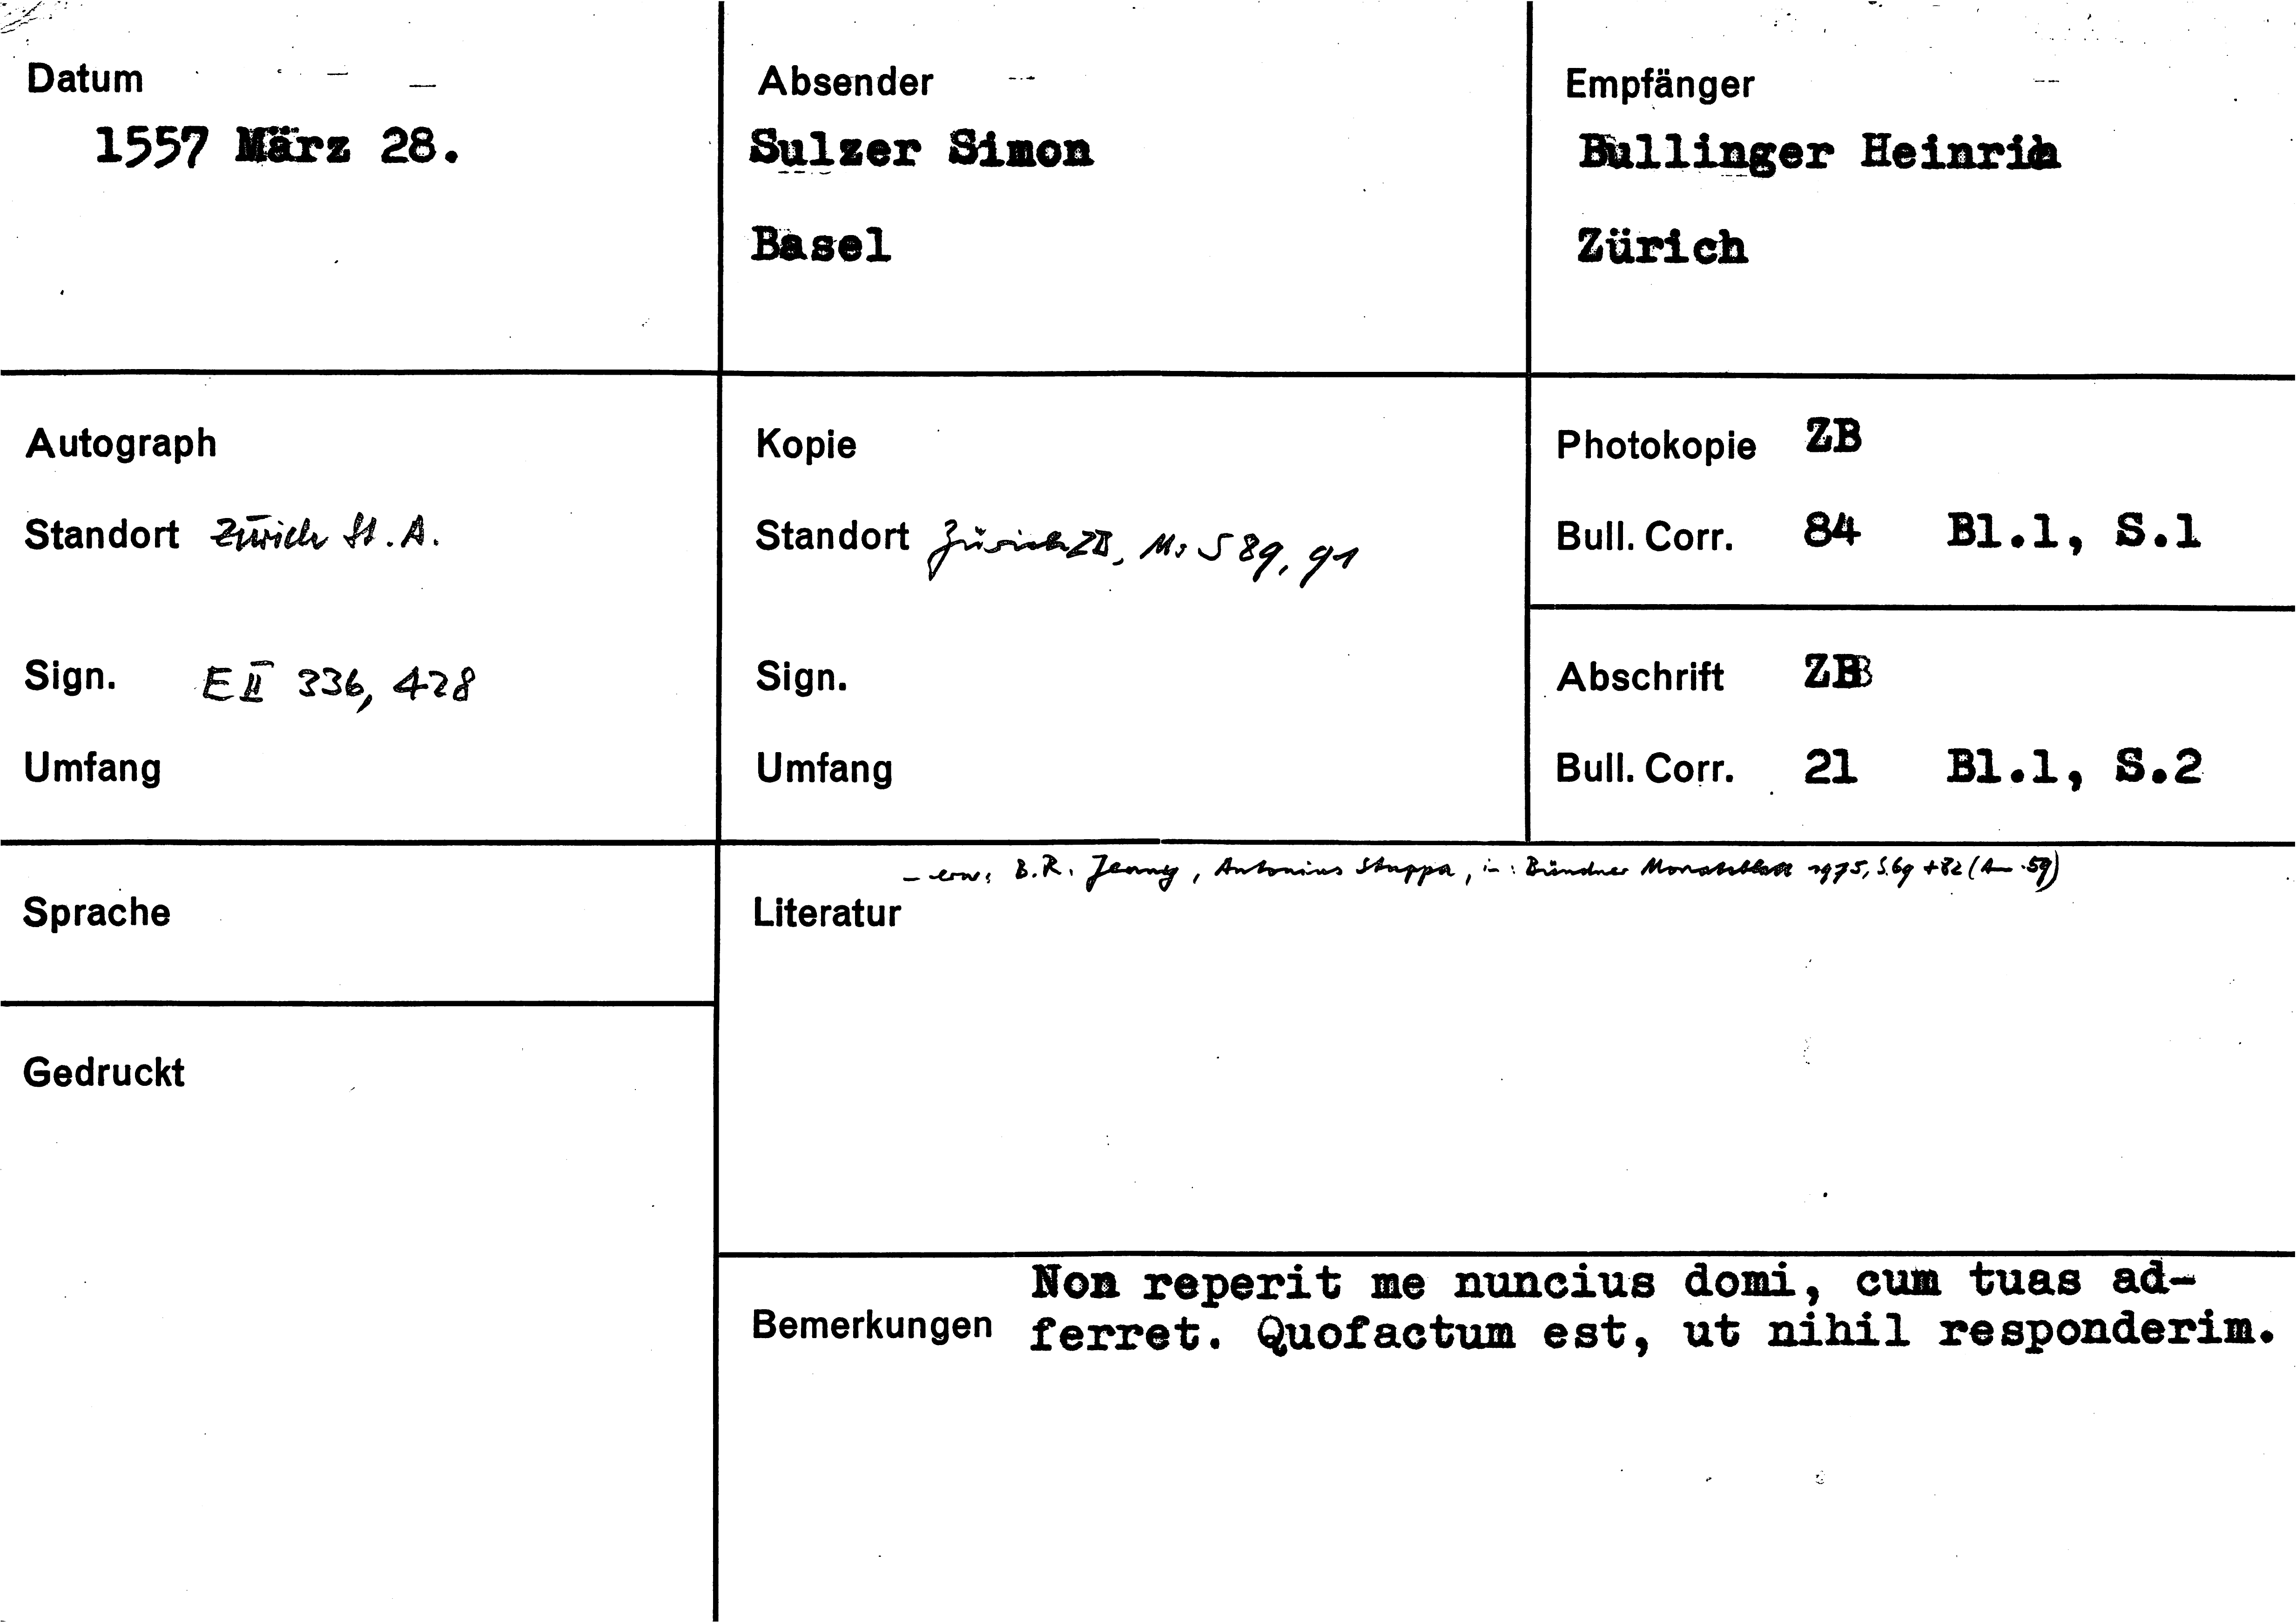 Datum
1557 März 28.
Absender
Sulzer Simon
Basel
Empfänger
Bullinger Heinrich
Zürich
Autograph
Standort Zürich St. A.
Sign. E II 336, 428
Umfang
Kopie
Standort Zürich ZB, Ms S 89, 91
Sign.
Umfang
Photokopie ZB
Bull. Corr. 84 Bl.1, S.1
Abschrift ZB
Bull. Corr. 21 Bl.1, S.2
Sprache
Gedruckt
– erw: B.R. Jenny, Antonius Stuppa, in: Bündner Monatsblatt 1975, S.69 + 82 (Anm. 59)
Literatur
Non reperit me nuncius domi, cum tuas ad-
Bemerkungen ferret. Quofactum est, ut nihil responderim.